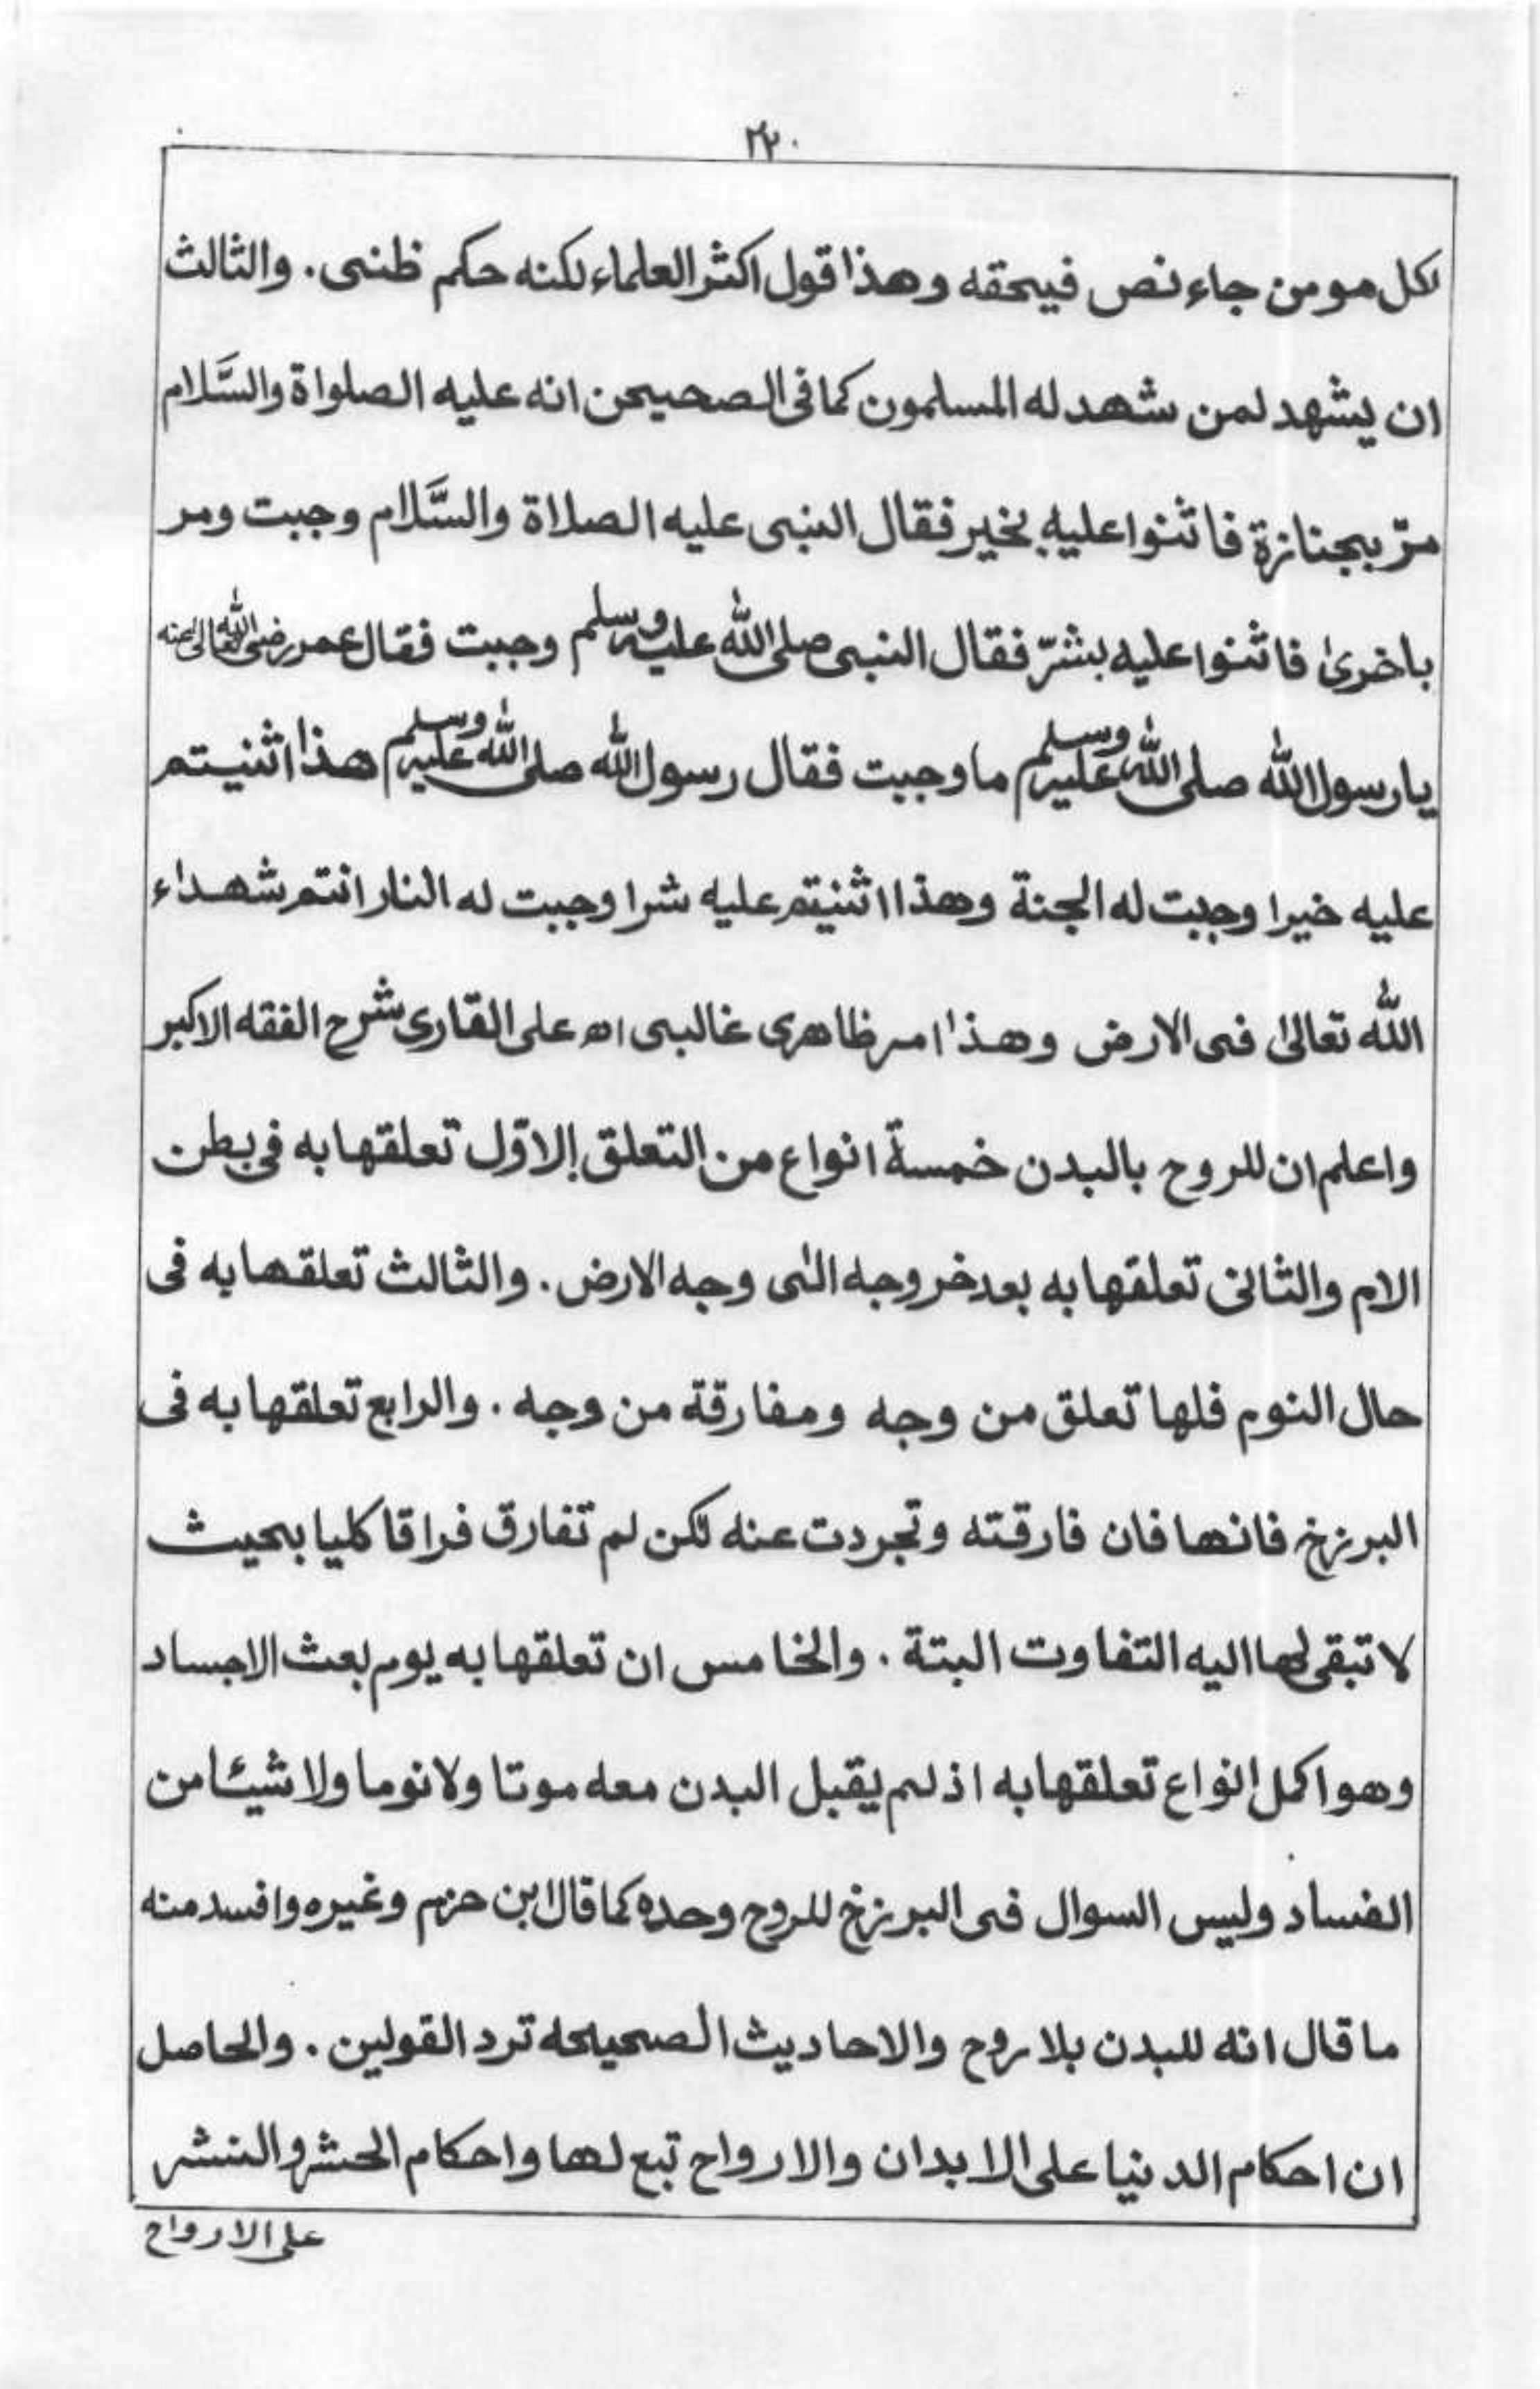 ۲۲۰
لكل مومن جاء نص فيحقه وهذا قول اكثر العلماء لكنه حكم ظنى. والثالث
ان يشهد لمن شهد له المسلمون كما فى الصحيحن انه عليه الصلواة والسَّلام
مرّ بجنازة فاثنوا عليهِ بخير فقال النبى عليه الصلاة والسَّلام وجبت ومر
باخرىٰ فاثنوا عليه بشرّ فقال النبى صلى الله عليه وسلم وجبت فقال عمر رضى الله تعالى عنه
يا رسول الله صلى الله عليه وسلم ما وجبت فقال رسول الله صلى الله عليه وسلم هذا اثنيتم
عليه خيرا وجبت له الجنة وهذا اثنيتم عليه شرا وجبت له النار انتم شهداء
الله تعالىٰ فى الارض وهذا امر ظاهرى غالبى اه على القارى شرح الفقه الاكبر
واعلم ان للروح بالبدن خمسة انواع من التعلق الاوّل تعلقها به فى بطن
الام والثانى تعلقها به بعد خروجه الىٰ وجه الارض. والثالث تعلقها به فى
حال النوم فلها تعلق من وجه ومفارقة من وجه. والرابع تعلقها به فى
البرزخ فانها فان فارقته وتجردت عنه لكن لم تفارق فراقا كليا بحيث
لا تبقى لها اليه التفاوت البتة. والخامس ان تعلقها به يوم بعث الاجساد
وهو اكمل انواع تعلقها به اذ لم يقبل البدن معه موتا ولا نوما ولا شيئا من
الفساد وليس السوال فى البرزخ للروح وحده كما قال ابن حزم وغيره وافسد منه
ما قال انه للبدن بلا روح والاحاديث الصحيحه ترد القولين. والحاصل
ان احكام الدنيا على الابدان والارواح تبع لها واحكام الحشر والنشر
على الارواح